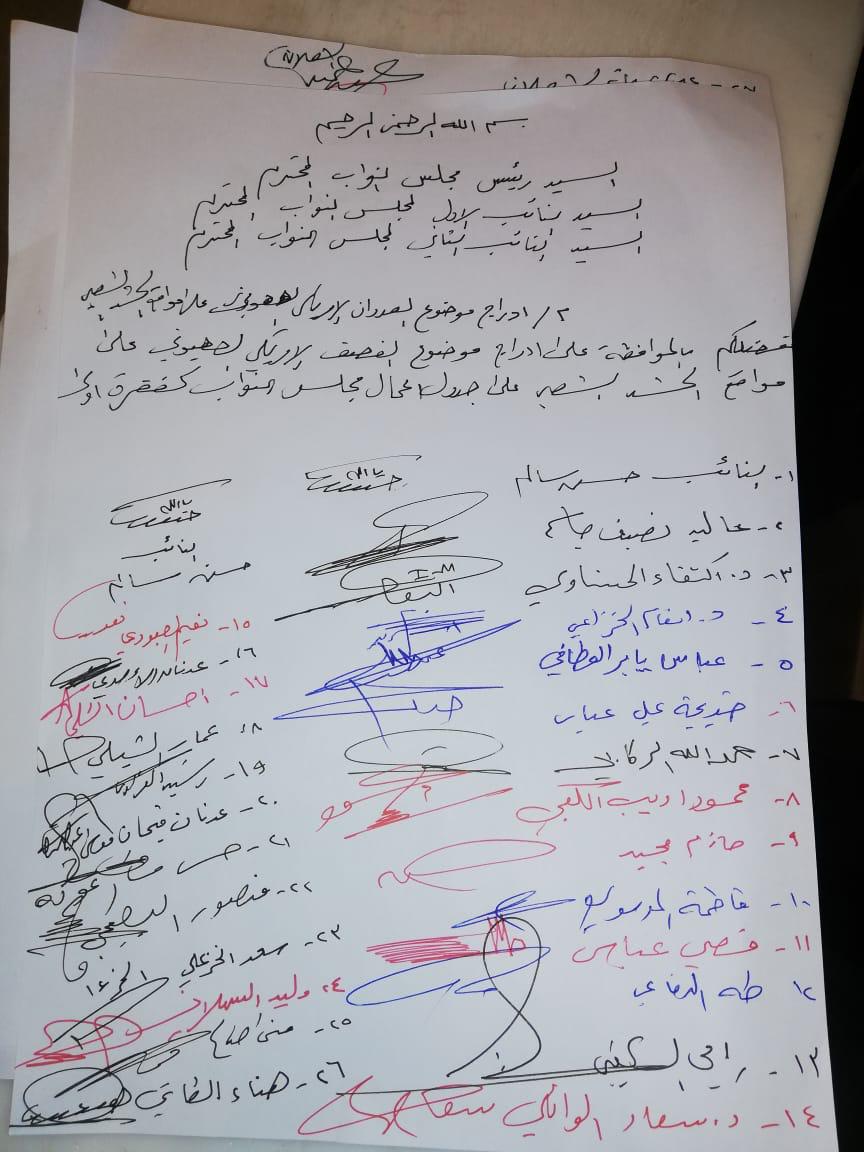 بسم الله الرحمن الرحيم
السيد رئيس مجلس النواب المحترم
السيد النائب الاول لمجلس النواب المحترم
السيد النائب الثاني لمجلس النواب المحترم
م/ ادراج موضوع العدوان الامريكي الصهيوني على مواقع الحشد الشعبي
تفضلكم بالموافقة على ادراج موضوع القصف الامريكي الصهيوني على
مواضع الحشد الشعبي على جدول اعمال مجلس النواب كفقرة اولى
١- النائب حسن سالم
٢- عالية نصيف جاسم
٣- د. اكتفاء الحسناوي
٤- د. انعام الخزاعي
٥- عباس يابر العطافي
٦- خديجة علي عباس
٧- عبد الله الركابي
٨- محمود اديب الكعبي
٩- حازم مجيد
١٠- فاطمة
١١- قصي عباس
١٢ طه الدفاعي
١٣- رامي السكيني
١٤- د. سعاد الوائلي سعاد
النائب
حسن سالم
١٥- نعيم العبودي
١٦- عدنان الاسدي
١٧- احسان
١٨- عمار الشبلي
١٩- رشيد العزاوي
٢٠- عدنان فيحان
٢١- حسن
٢٢- منصور البعيجي
٢٣- سعد الخزعلي
٢٤- وليد السهلاني
٢٥- منى
٢٦- هناء الطائي